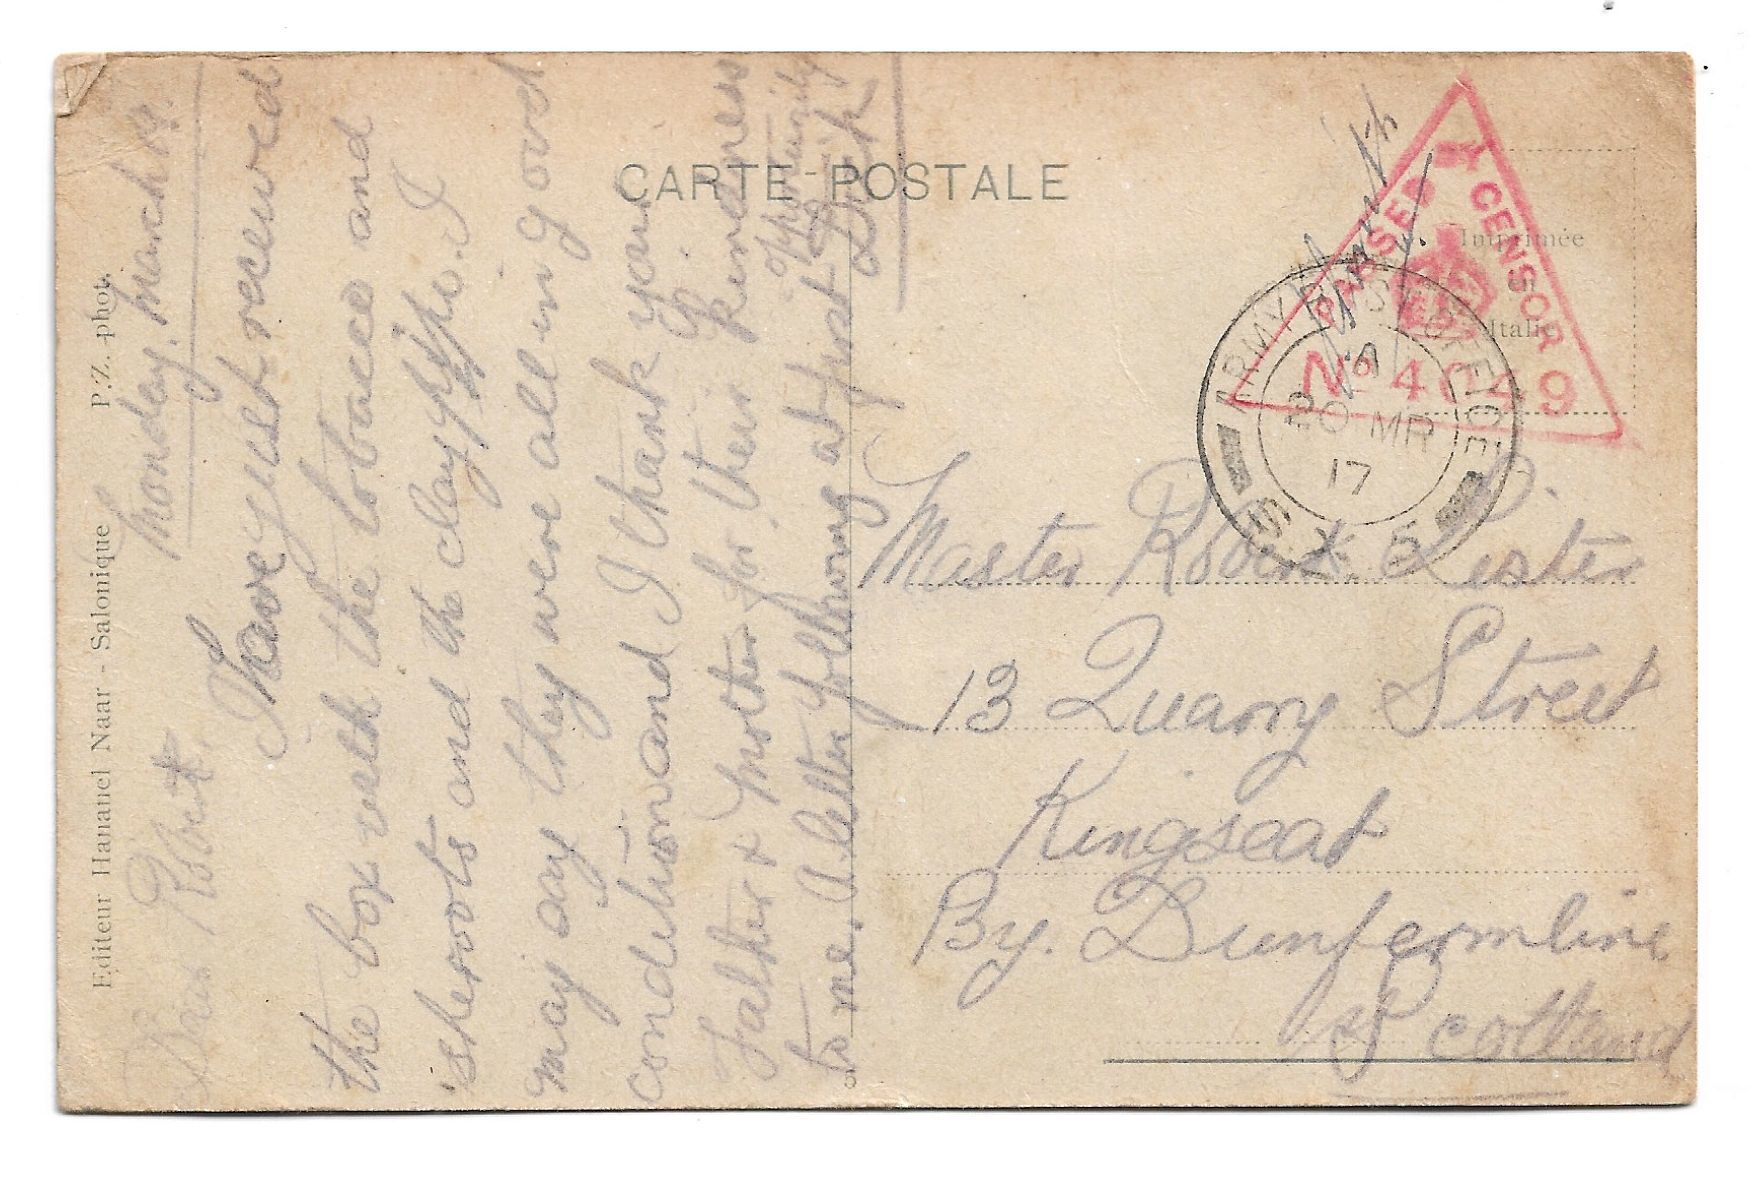 CARTE-POSTALE
Imprimée
en
Italie
PASSED BY CENSOR
No 4049
ARMY POST OFFICE
20 MR
17
S.X.5
Editeur Hananel Naar - Salonique P.Z. phot.
Monday. March 19.
Dear Robert.
I have just received
the box with the tobacco and
'sheroots and the clay pipe. I
may say they were all in good
condition and I thank your
Father & Mother for their kindness
to me. A letter following at first
opportunity
Dick
Master Robert Lister
13 Quarry Street
Kingseat
By. Dunfermline
Scotland